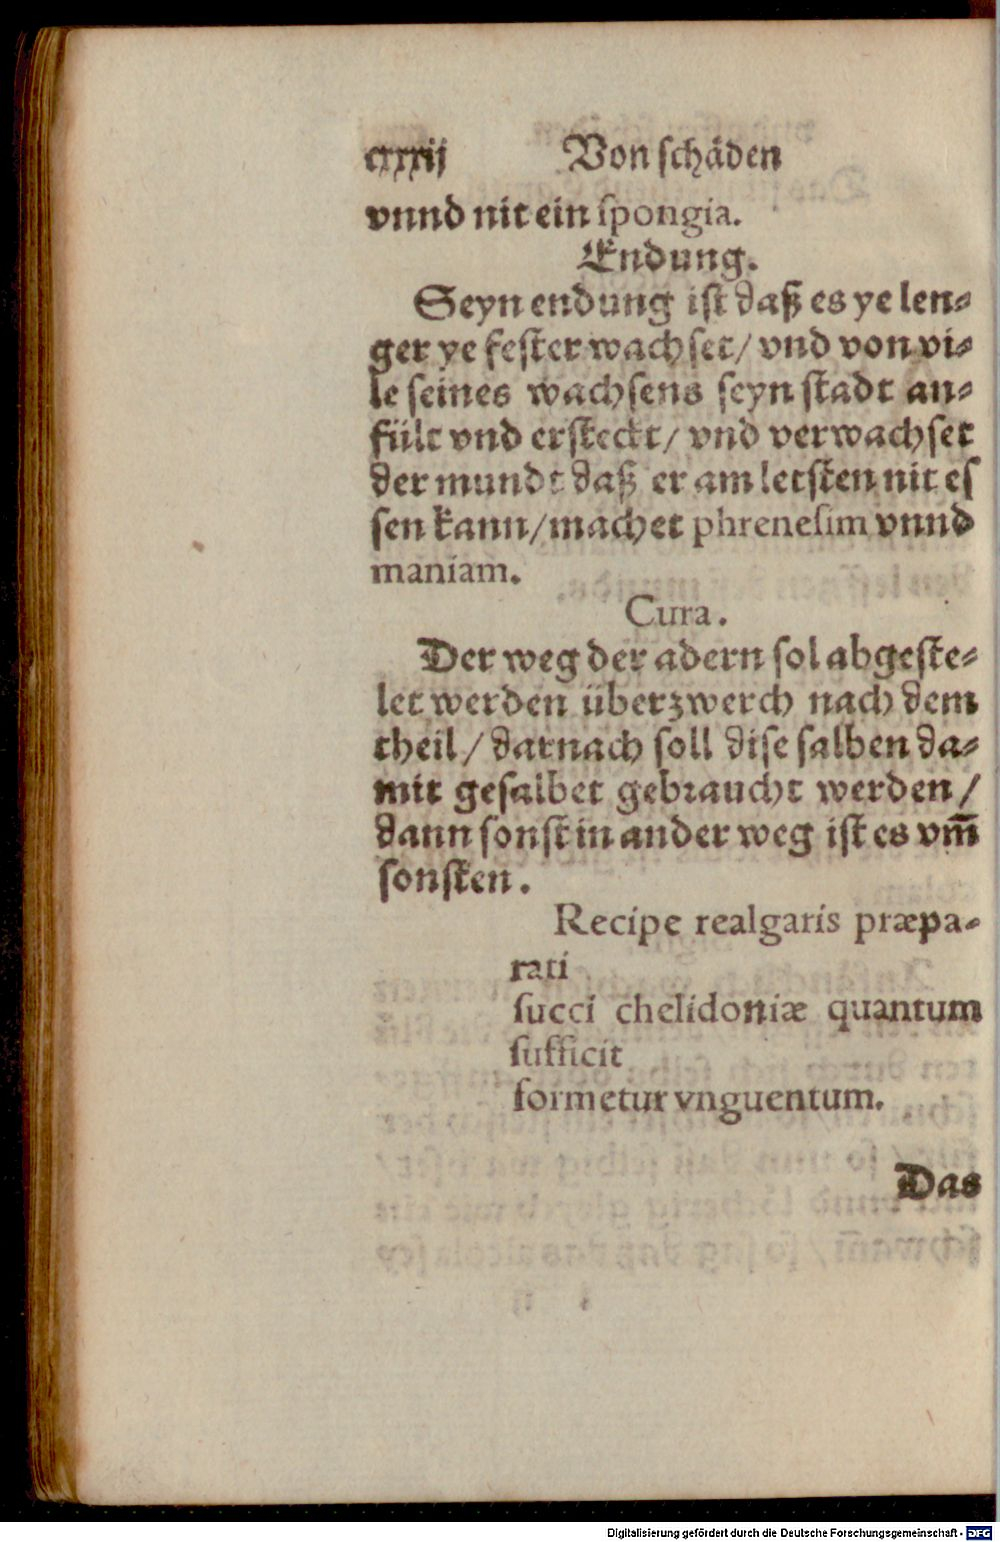 cxxxij Von schäden
vnnd nit ein spongia.
Endung.
Seyn endung ist daß es ye len-
ger ye fester wachset/ vnd von vi-
le seines wachsens seyn stadt an-
fült vnd ersteckt/ vnd verwachset
der mundt daß er am letsten nit es
sen kann/machet phrenesim vnnd
maniam.
Cura.
Der weg der adern sol abgeste-
let werden überzwerch nach dem
theil/ darnach soll dise salben da-
mit gesalbet gebraucht werden/
dann sonst in ander weg ist es vm̄
sonsten.
Recipe realgaris præpa-
rati
succi chelidoniæ quantum
sufficit
formetur vnguentum.
Das
Digitalisierung gefördert durch die Deutsche Forschungsgemeinschaft - DFG